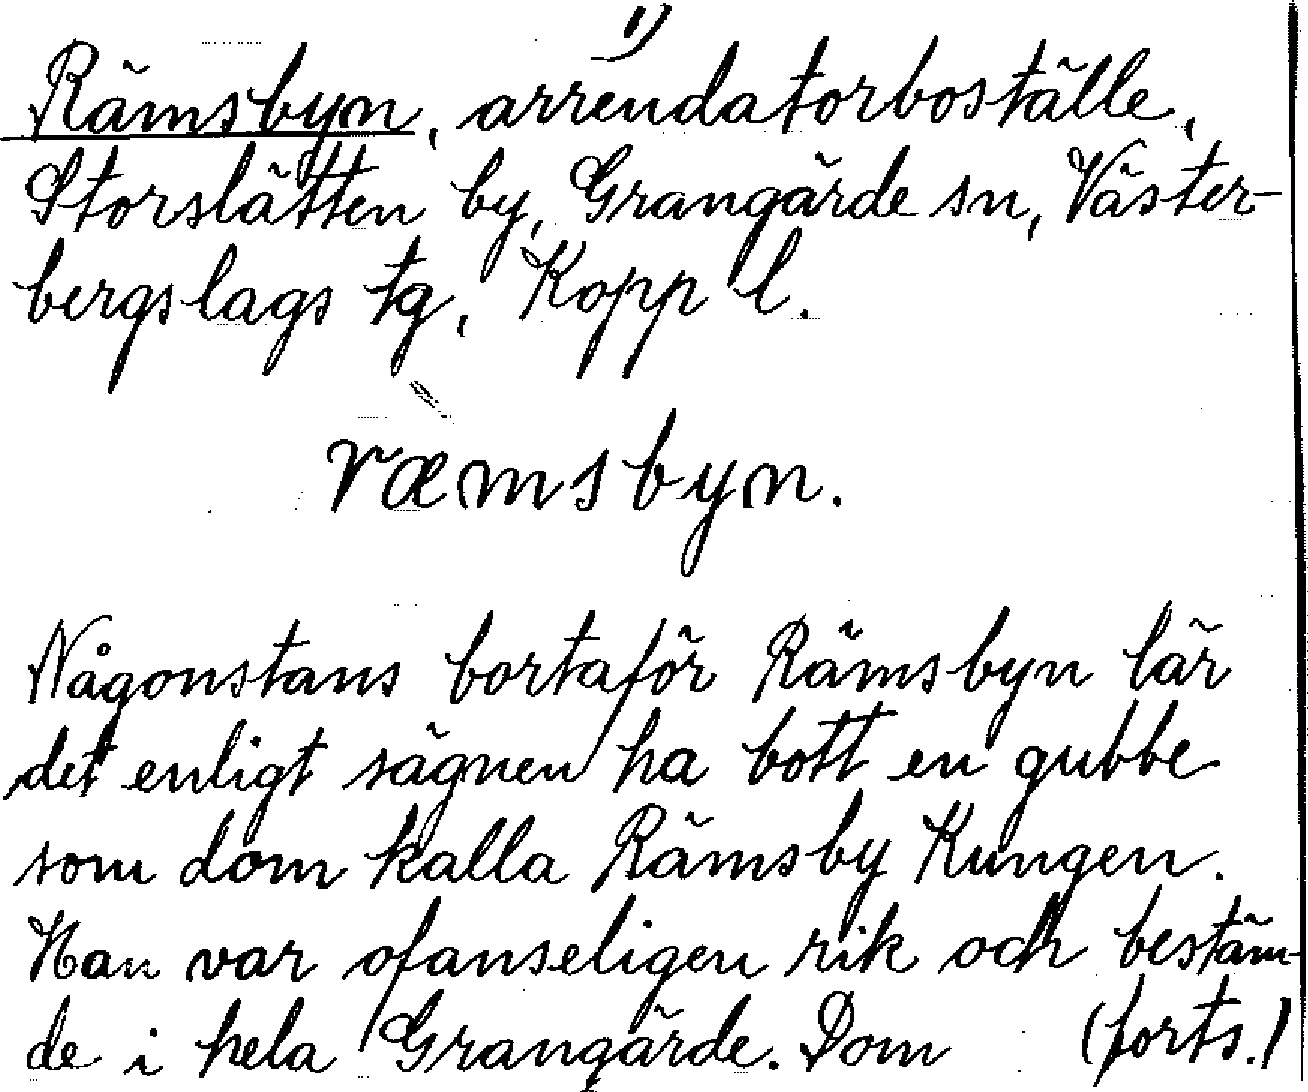 1)
Rämsbyn, arrendatorboställe,
Storslätten by, Grangärde sn, Väster-
bergslags tg, Kopp l.
ræmsbyn.
Någonstans bortaför Rämsbyn lär
det enligt sägnen ha bott en gubbe
som dom kalla Rämsby Kungen.
Han var ofanseligen rik och bestäm-
de i hela Grangärde. Dom (forts.)